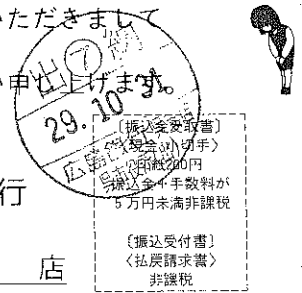 いただきまして
い申し上げます。
出 ⑦ 納
29.10.31
行
店
〔振込金受取書〕
〈現金・小切手〉
印紙200円
振込金+手数料が
5万円未満非課税
〔振込受付書〕
〈払戻請求書〉
非課税